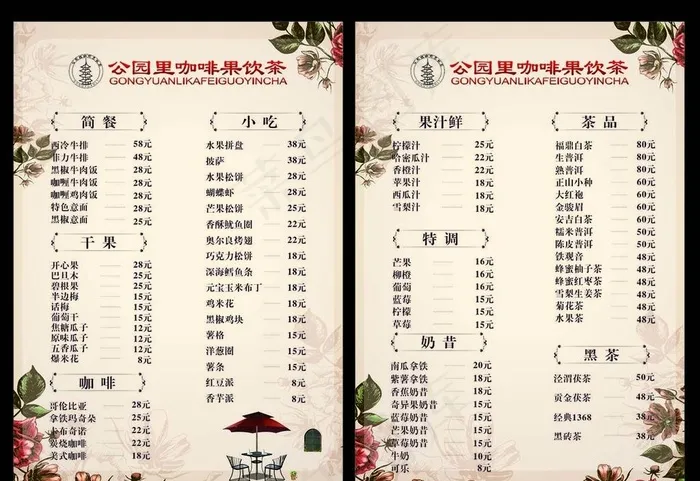 公园里咖啡果饮茶
GONGYUANLIKAFEIGUOYINCHA
简餐
西冷牛排 58元
菲力牛排 48元
黑椒牛肉饭 28元
咖喱牛肉饭 28元
咖喱鸡肉饭 28元
特色意面 28元
黑椒意面 25元
干果
开心果 28元
巴旦木 25元
碧根果 25元
半边梅 15元
话梅 15元
葡萄干 15元
焦糖瓜子 12元
原味瓜子 12元
五香瓜子 12元
爆米花 8元
咖啡
哥伦比亚 28元
拿铁玛奇朵 25元
卡布奇诺 22元
炭烧咖啡 22元
美式咖啡 18元
小吃
水果拼盘 38元
披萨 38元
水果松饼 28元
蝴蝶虾 28元
芒果松饼 25元
香酥鱿鱼圈 22元
奥尔良烤翅 22元
巧克力松饼 18元
深海鳕鱼条 18元
元宝玉米布丁 18元
鸡米花 18元
黑椒鸡块 18元
薯格 15元
洋葱圈 15元
薯条 15元
红豆派 8元
香芋派 8元
公园里咖啡果饮茶
GONGYUANLIKAFEIGUOYINCHA
果汁鲜
柠檬汁 25元
哈密瓜汁 22元
香橙汁 22元
苹果汁 18元
西瓜汁 18元
雪梨汁 18元
特调
芒果 16元
柳橙 16元
葡萄 16元
蓝莓 15元
柠檬 15元
草莓 15元
奶昔
南瓜拿铁 20元
紫薯拿铁 18元
香蕉奶昔 18元
奇异果奶昔 15元
蓝莓奶昔 15元
芒果奶昔 15元
草莓奶昔 15元
牛奶 10元
可乐 8元
茶品
福鼎白茶 80元
生普洱 80元
熟普洱 80元
正山小种 60元
大红袍 60元
金骏眉 60元
安吉白茶 60元
糯米普洱 50元
陈皮普洱 50元
铁观音 48元
蜂蜜柚子茶 48元
蜂蜜红枣茶 48元
雪梨生姜茶 48元
菊花茶 48元
水果茶 48元
黑茶
泾渭茯茶 50元
贡金茯茶 48元
经典1368 38元
黑砖茶 38元